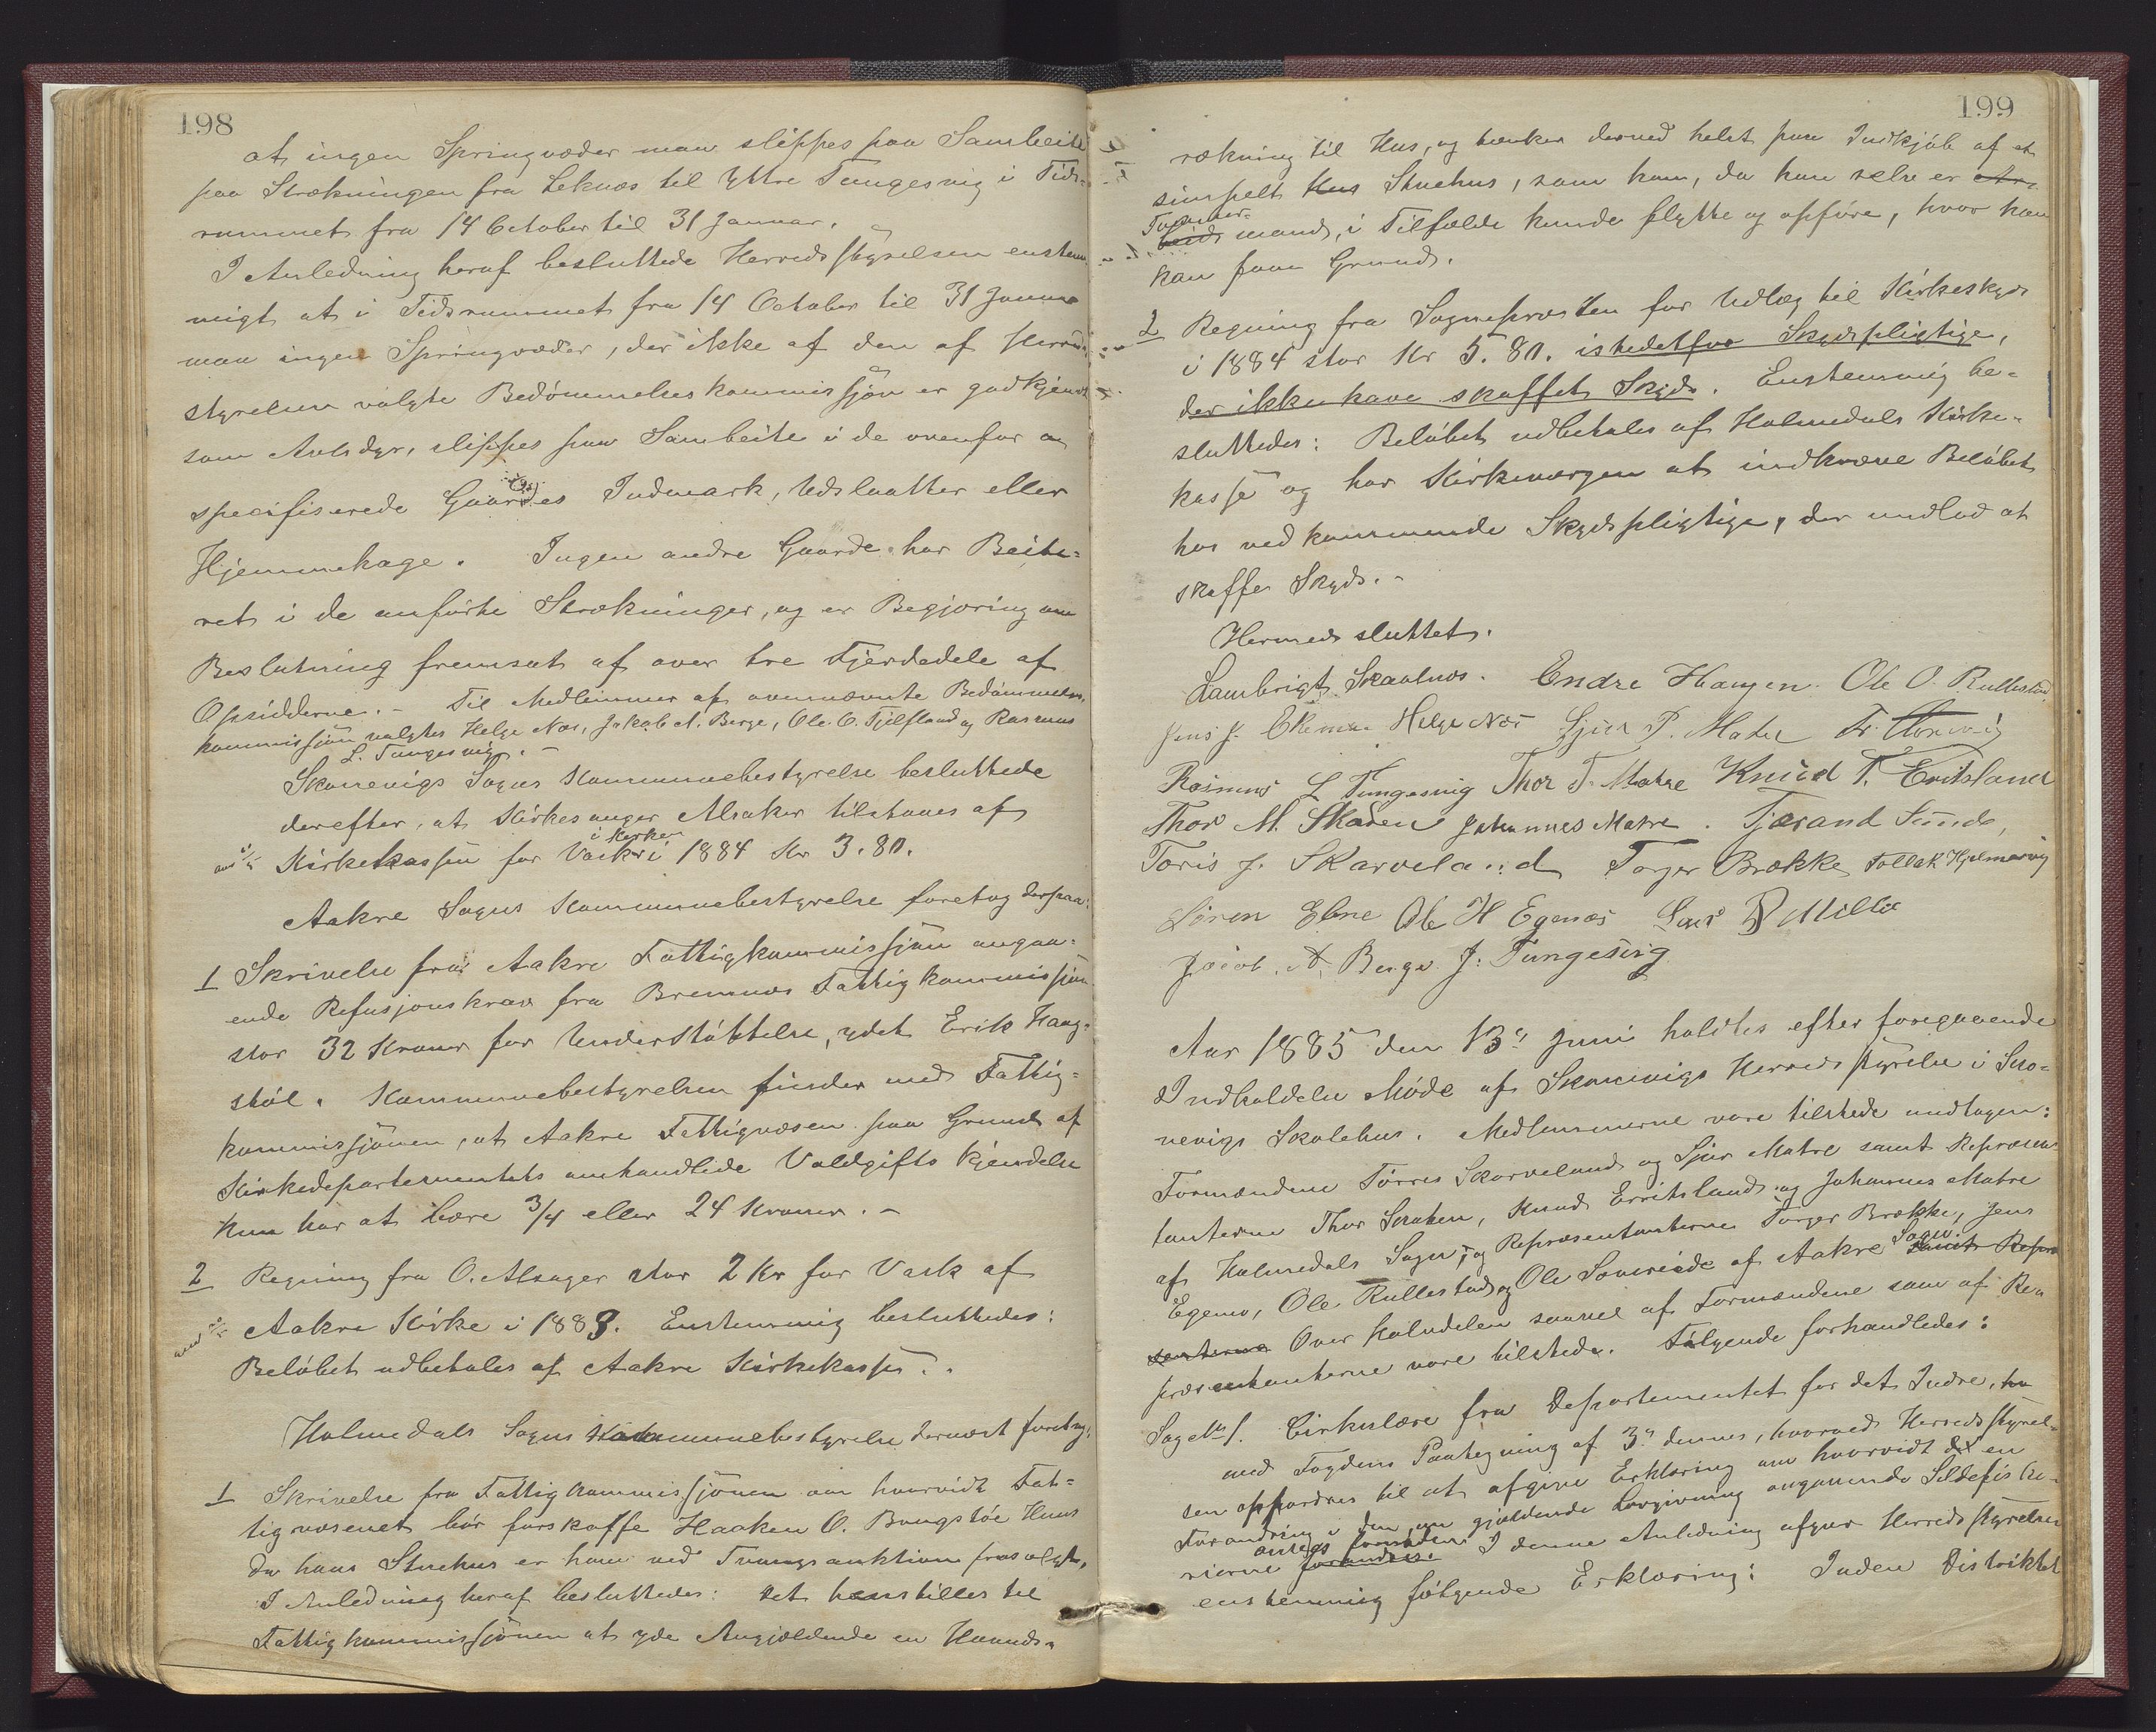 198
at ingen Springvæder maa slippes paa Sambeite
paa Strækningen fra Leknæs til Yttre Tungesvig i Tids-
rummet fra 14 October til 31 Januar.
I Anledning heraf besluttede Herredsstyrelsen enstem-
migt at i Tidsrummet fra 14 October til 31 Januar
maa ingen Springvæder, der ikke af den af Herreds-
styrelsen valgte Bedømmelseskommissjon er godkjendt
som Avlsdyr, slippes paa Sambeite i de ovenfor
specifiserede Gaardes Indmark, Udslaatter eller
Hjemmehage. Ingen andre Gaarde har Beite-
ret i de anførte Strækninger, og er Begjæring om
Beslutning fremsat af over tre Fjerdedele af
Opsidderne. - Til Medlemmer af ovennævnte Bedømmelses-
kommissjon valgtes Helge Næs, Jakob A. Berge, Ole O. Fjelstand og Rasmus
L. Tungesvig. -
Skonevigs Sogns Kommunebestyrelse besluttede
derefter, at Kirkesanger Alsaker tilstaaes af
Kirkekassen for Vask i Kirken i 1884 Kr 3.80.
Aakre Sogns Kommunebestyrelse foretog derpaa:
1 Skrivelse fra Aakre Fattigkommissjon angaa-
ende Refusjonskrav fra Bremnes Fattigkommissjon
stor 32 Kroner for Understøttelse, ydet Erik Haug-
støl. Kommunebestyrelsen finder med Fattig-
kommissjonen, at Aakre Fattigvæsen paa Grund af
Kirkedepartementets omhandlede Voldgifts kjendelse
kun har at bære 3/4 eller 24 Kroner. -
2 Regning fra O. Alsager stor 2 Kr for Vask af
Aakre Kirke i 1883. Enstemmig besluttedes:
Beløbet udbetales af Aakre Kirkekasse. -
Holmedals Sogns Kommunebestyrelse dernæst foretog:
1 Skrivelse fra Fattigkommissjonen om hvorvidt Fat-
tigvæsenet bør forskaffe Haaken O. Bangstøe Huus
da hans Stuehus er ham ved Tvangsauktion frasolgt.
I Anledning heraf besluttedes: Det henstilles til
Fattigkommissjonen at yde Angjældende en Haands-
199
rækning til Hus, og tænkes derved helst paa Indkjøb af et
simpelt Hus Stuehus, som han, da han selv er Ar-
Tømmer-
beids mand, i Tilfælde kunde flytte og opføre, hvor han
kan faa Grund.
2 Regning fra Sognepræsten for Udlæg til Kirkeskyds
i 1884 stor Kr 5.80. istedetfor Skydspligtige,
der ikke have skaffet Skyds. Enstemmig be-
sluttedes: Beløbet udbetales af Holmedals Kirke-
kasse og har Kirkeværgen at indkræve Beløbet
hos vedkommende Skydspligtige, der undlod at
skaffe Skyds. -
Hermed sluttet.
Lambrigt Skaalnes. Endre Haugen. Ole O. Rullestad
Jens J. Helge Næs Sjur P. Matre
Rasmus L Tungesvig Thor T. Matre Knud T. Eritsland
Thor M. Skaden Johannes Matre. Tjærand Sunde,
Toris J. Skarveland Torger Brække Tollak Hjelmervig
Søren Ebne Ole H Egenæs Milje
Jacob. A. Berge J. Tungesvig
Aar 1885 den 13de Juni holdtes efter foregaaende
Indkaldelse Møde af Skonevigs Herredsstyrelse i Sko-
nevigs Skolehus. Medlemmerne vare tilstede undtagen:
Formændene Tørres Skarveland og Sjur Matre samt Repræsen-
tanterne Thor Skaden, Knud Erritsland og Johannes Matre
af Holmedals Sogn; og Repræsentanterne Torger Brække, Jens
Egenæs, Ole Rullestad og Ole Sævereide af Aakre Sogn. samt Repræ
senterne Over Halvdelen saavel af Formændene som af Re-
præsentanterne vare tilstede. Følgende forhandledes:
Sag No 1. Cirkulære fra Departementet for det Indre,
med Fogdens Paategning af 3de dennes, hvorved Herredsstyrel-
sen opfordres til at afgive Erklæring om hvorvidt en
Forandring i den nu gjældende Lovgivning angaaende Sildefiske-
rierne ansees fornøden. I denne Anledning afgav Herredsstyrelsen
enstemmig følgende Erklæring: Inden Distriktet